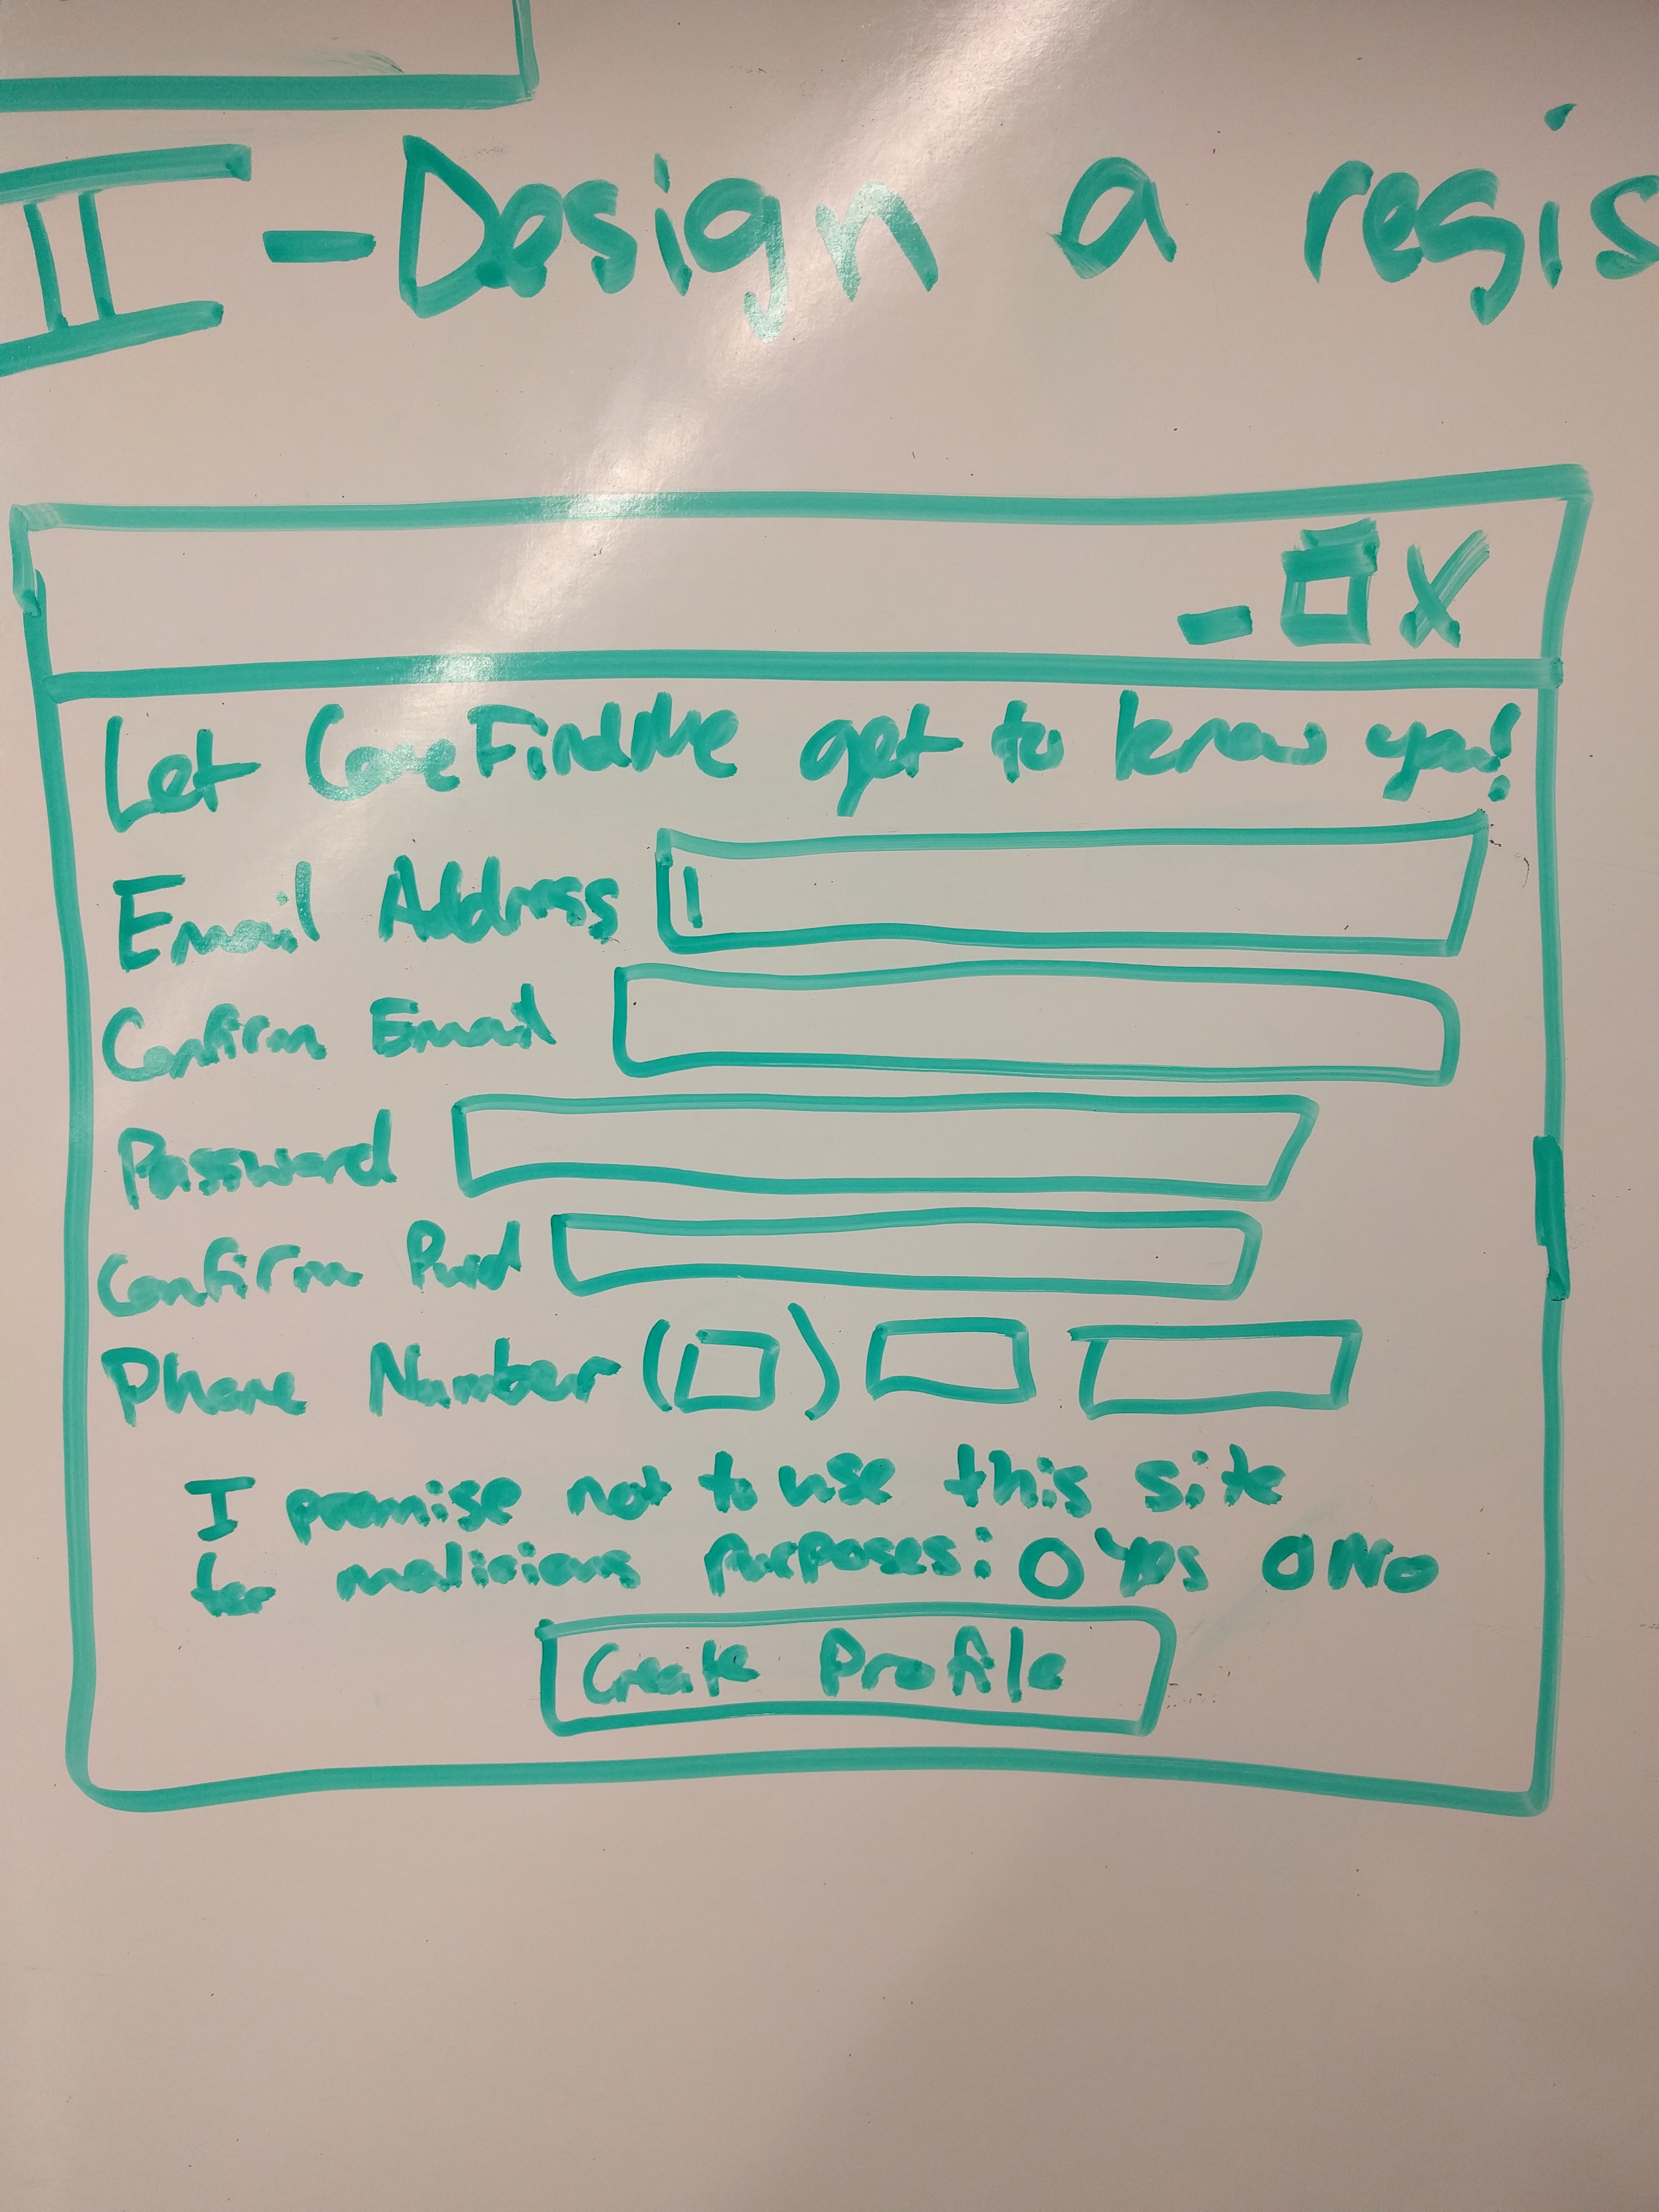 II - Design a regis
Let CareFindMe get to know you!
Email Address
Confirm Email
Password
Confirm Pwd
Phone Number ( )
I promise not to use this site
for malicious purposes: O Yes O No
Create Profile